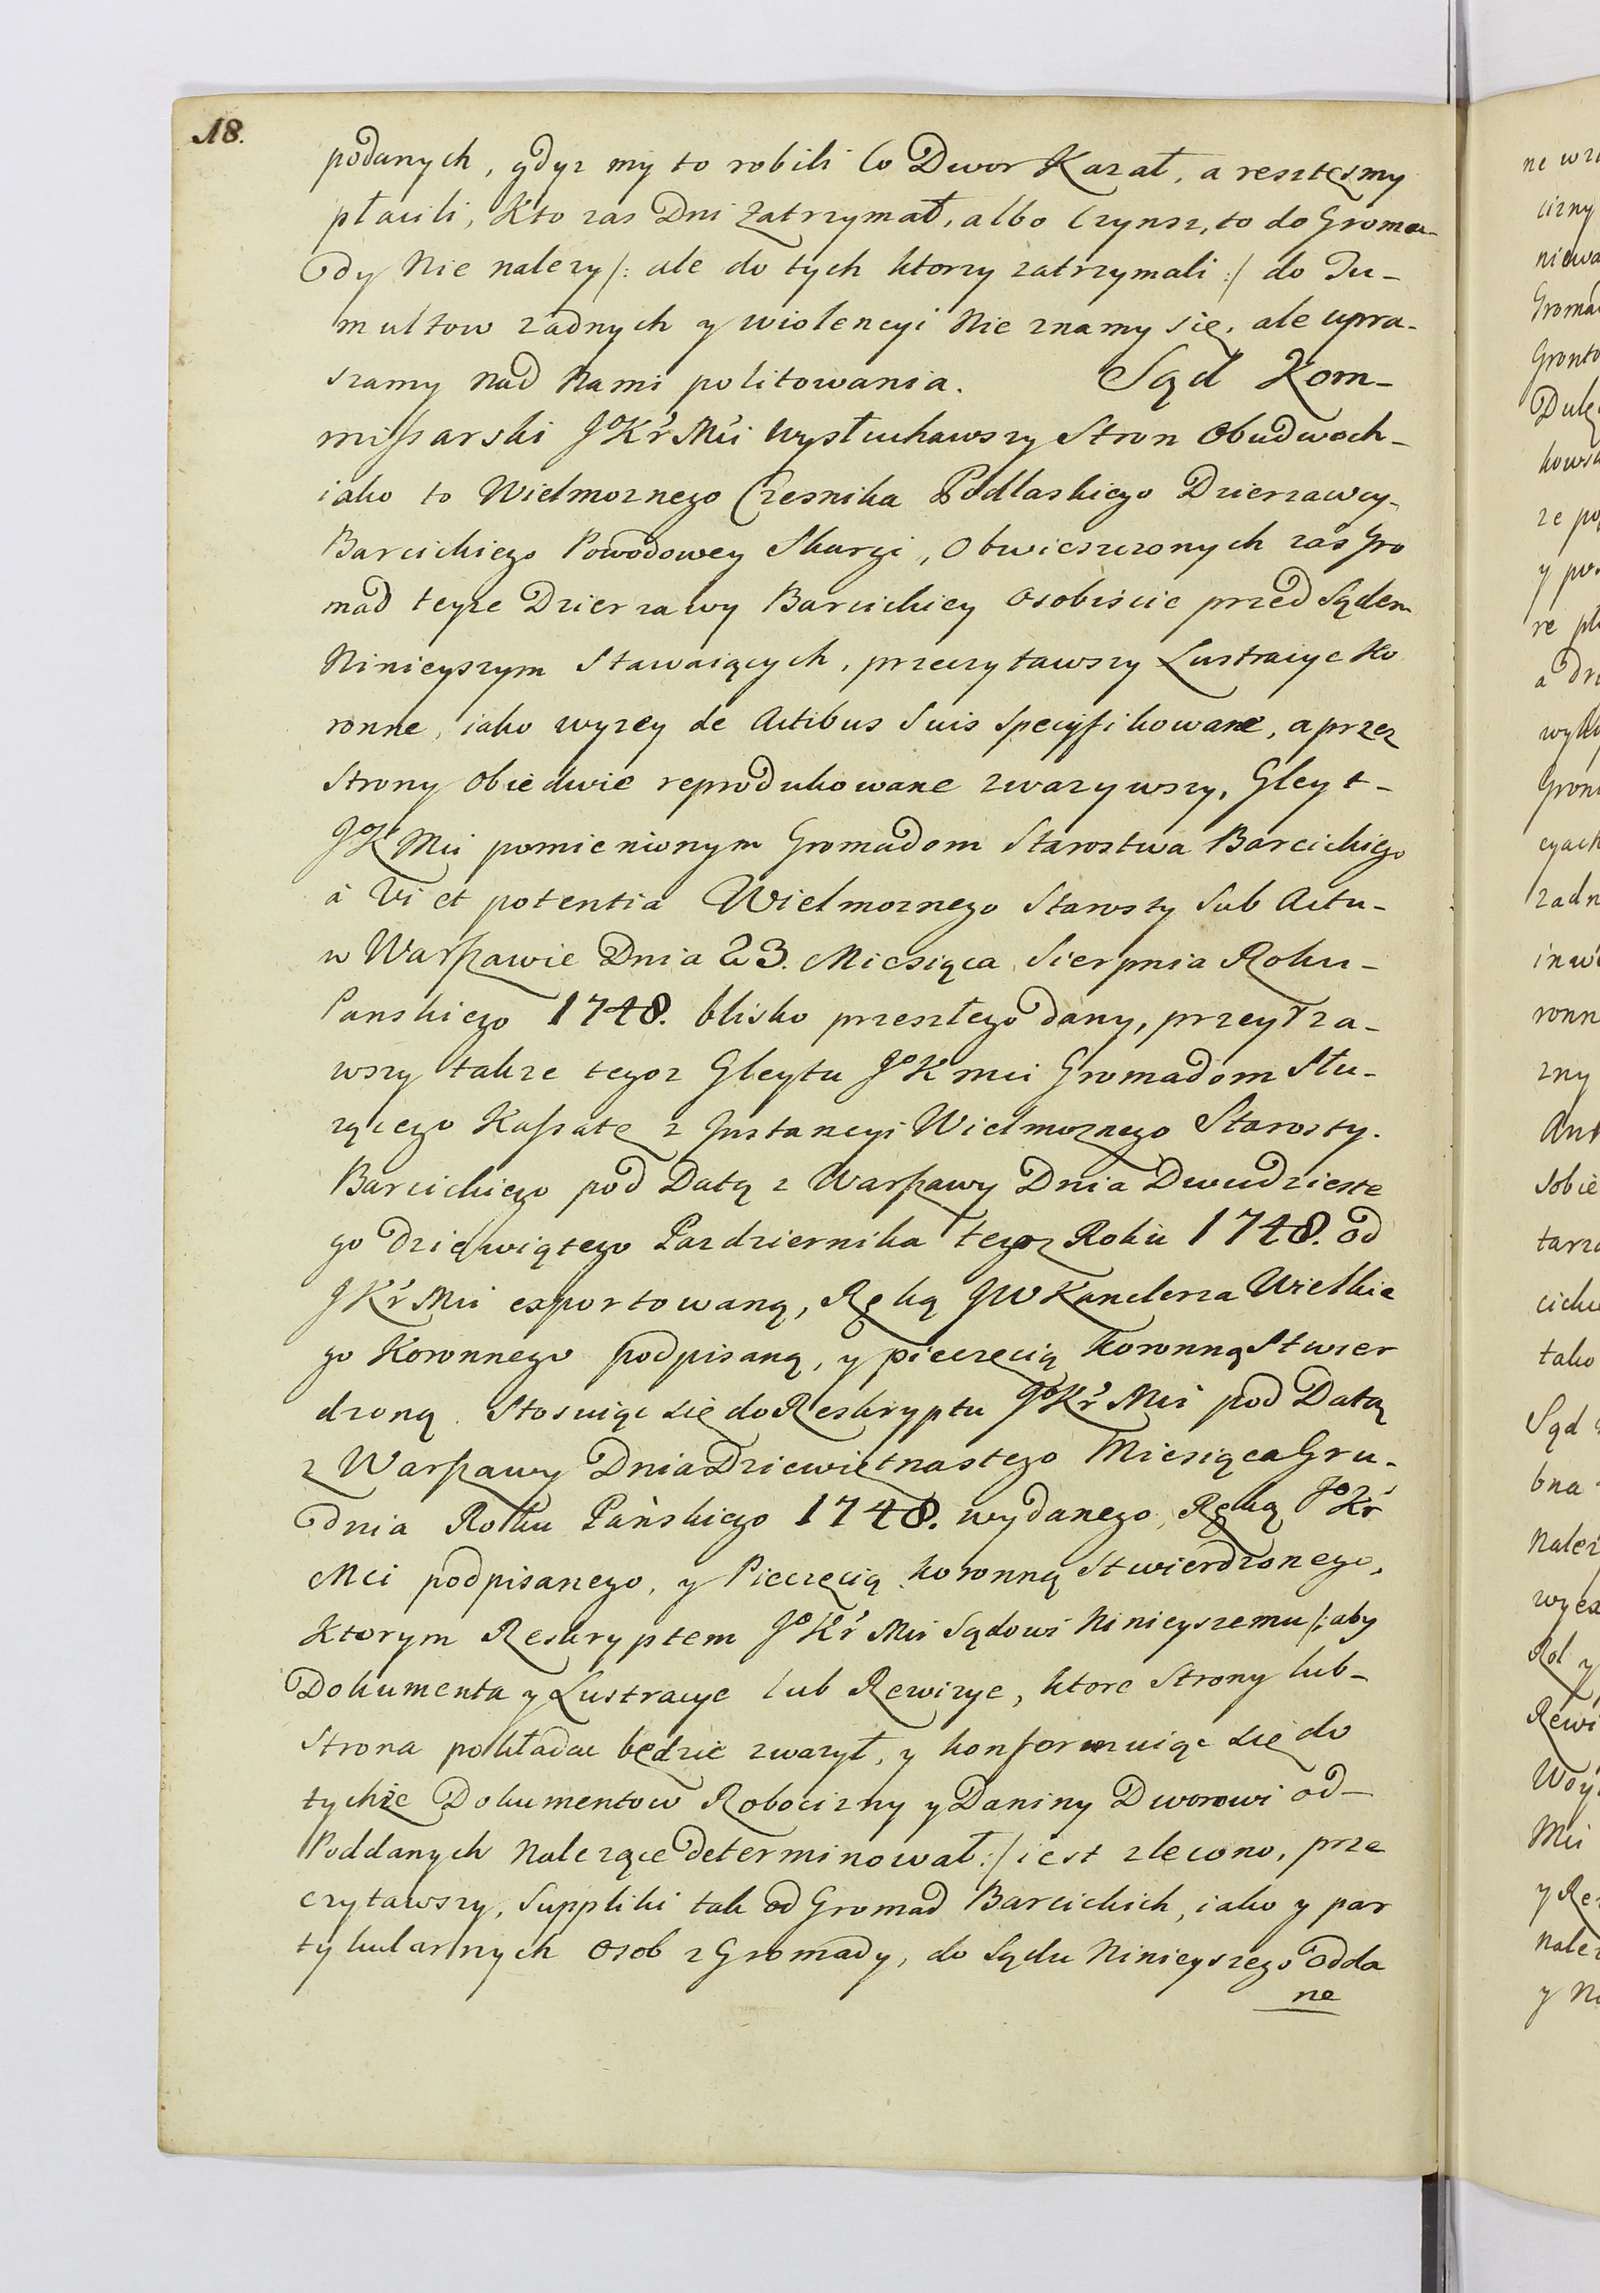 18.
podanych, gdyz my to robili Co Dwor Kazał, a resztęsmy
płacili, Kto zas Dni Zatrzymał, albo Czynsz, to do Groma-
dy Nie nalezy /: ale do tych ktorzy zatrzymali :/ do Tu-
multow zadnych y wiolencyi Nie znamy się, ale upra-
szamy nad Nami politowania. Sąd Kom-
missarski JoKr Mci Wysłuchawszy Stron Obudwoch-
iako to Wielmoznego Czesnika Podlaskiego Dzierzawcy,
Barcickiego Powodowey Skargi, Obwieszczonych zaś Gro
mad teyze Dzierzawy Barcickiey Osobiscie przed Sądem
Ninieyszym Stawaiących, przeczytawszy Lustracye Ko
ronne, iako wyzey de Actibus Suis Specyfikowane, a przez
Strony Obiedwie reprodukowane zwazywszy, Gleyt-
JoK Mci pomienionym Gromadom Starostwa Barcickiego
à Vi et potentia Wielmoznego Starosty Sub Actu-
w Warszawie Dnia 23. Miesiąca Sierpnia Roku-
Panskiego 1748. blisko przeszłego dany, przeyrza-
wszy takze tegoz Gleytu JoK mci Gromadom Słu-
zącego Kassatę z Jnstancyi Wielmoznego Starosty.
Barcickiego pod Datą z Warszawy Dnia Dwudzieste
go dziewiątego Pazdziernika tegoz Roku 1748. od
JKr Mci exportowaną, Ręką JW Kanclerza Wielkie
go Koronnego podpisaną, y pieczęcią koronną Stwier
dzoną. Stosuiąc się do Reskryptu JoKr Mci pod Datą
z Warszawy Dnia Dziewiętnastego Miesiąca Gru-
dnia Roku Pańskiego 1748. wydanego, Ręką JoKr
Mci podpisanego, y Pieczęcią koronną Stwierdzonego,
Ktorym Reskryptem JoKr Mci Sądowi Ninieyszemu /: aby
Dokumenta y Lustracye lub Rewizye, ktore Strony lub-
Strona pokładac będzie zwazył, y konformuiąc się do
tychże Dokumentow Robocizny y Daniny Dworowi od-
Poddanych Nalezące determinował :/ iest zlecono, prze
czytawszy, Suppliki tak od Gromad Barcickich, iako y par
tykularnych Osob z Gromady, do Sądu Ninieyszego odda
ne